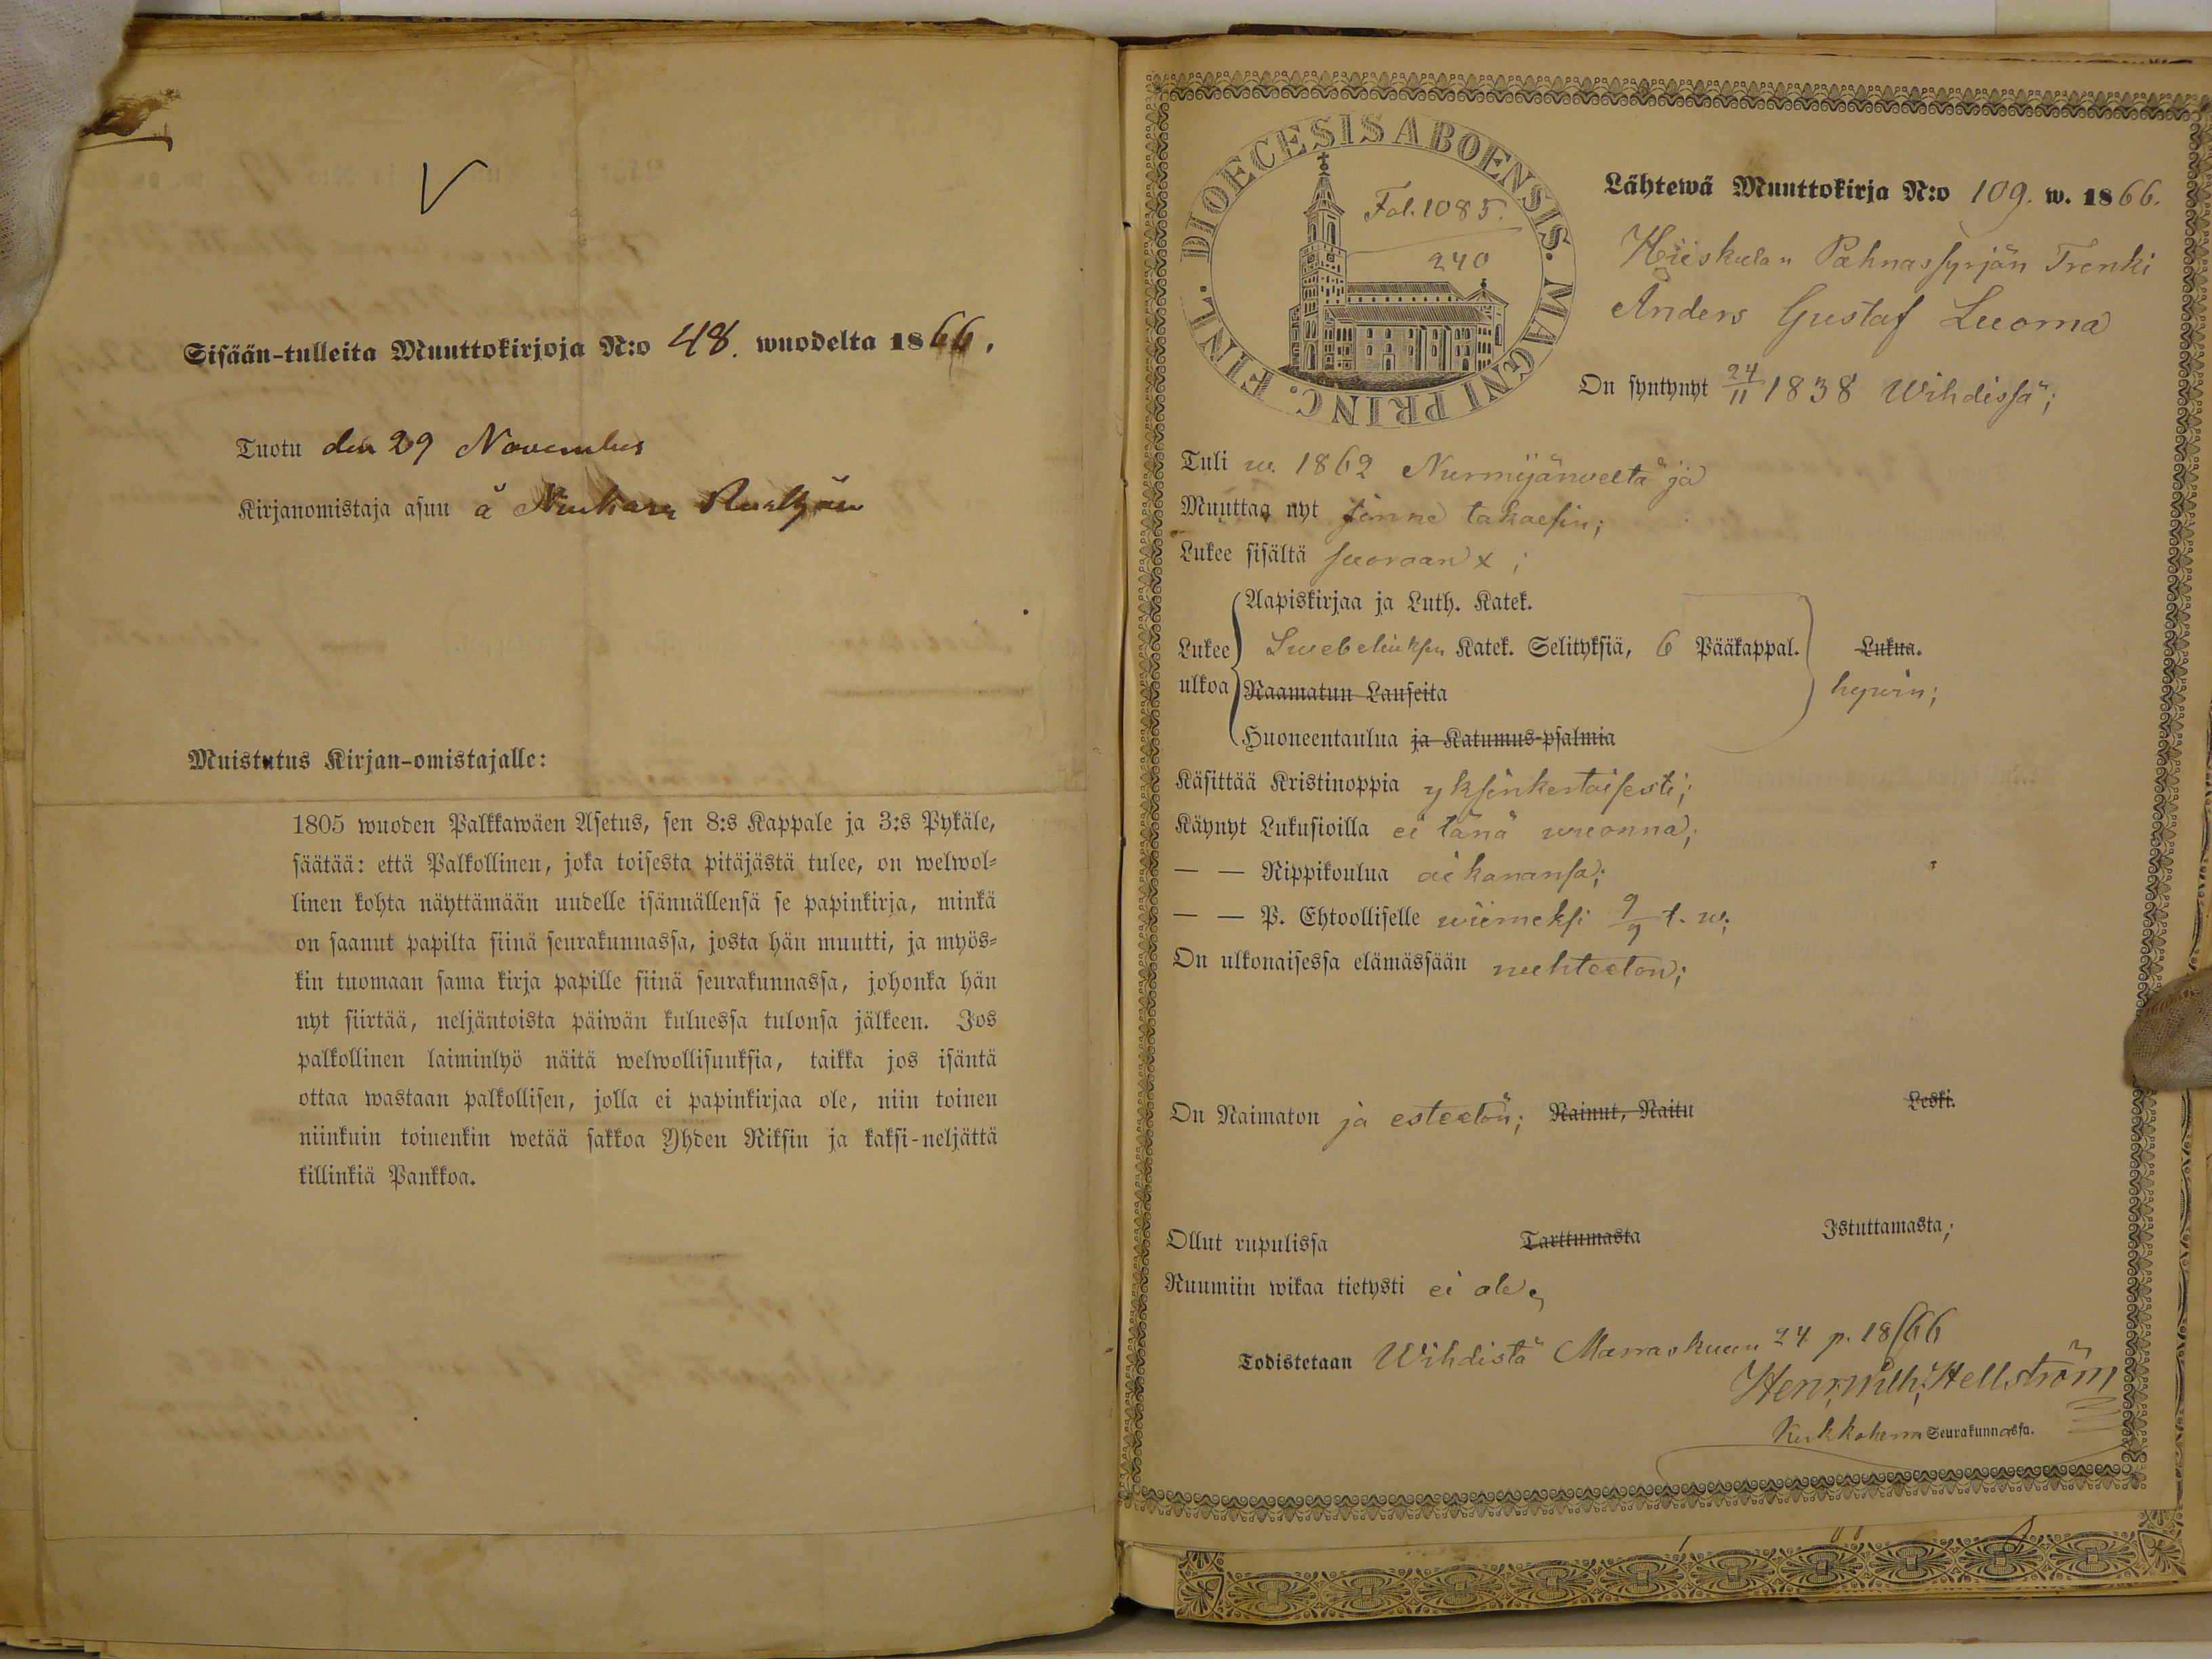 V
Sisään-tulleita Muuttokirjoja N:o 48. wuodelta 1866.
Tuotu den 29 November
Kirjanomistaja asuu å
Muistutus Kirjan-omistajalle:
1805 wuoden Palkkawäen Asetus, sen 8:s Kappale ja 3:s Pykäle,
säätää: että Palkollinen, joka toisesta pitäjästä tulee, on welwol=
linen kohta näyttämään uudelle isännällensä se papinkirja, minkä
on saanut papilta siinä seurakunnassa, josta hän muutti, ja myös=
kin tuomaan sama kirja papille siinä seurakunnassa, johonka hän
nyt siirtää, neljäntoista päiwän kuluessa tulonsa jälkeen. Jos
palkollinen laiminlyö näitä welwollisuuksia, taikka jos isäntä
ottaa wastaan palkollisen, jolla ei papinkirjaa ole, niin toinen
niinkuin toinenkin wetää sakkoa Yhden Riksin ja kaksi-neljättä
killinkiä Pankkoa.
DIOECESIS ABOENSIS. MAGNI PRINC. FINL.
Fol. 1085.
240
Lähtewä Muuttokirja N:o 109. w. 1866.
Hiiskulan Pahnassyrjän Trenki
Anders Gustaf Luoma
On syntynyt 24/11 1838 Wihdissä;
Tuli w. 1862 Nurmijärweltä ja
Muuttaa nyt sinne takaesin;
Lukee sisältä suoraan x;
Aapiskirjaa ja Luth. Katek.
Lukee Swebeliuksen Katek. Selityksiä, 6 Pääkappal. Lukua.
ulkoa Raamatun Lauseita hywin;
Huoneentaulua ja Katumus-psalmia
Käsittää Kristinoppia yksinkertaisesti;
Käynyt Lukusioilla ei tänä wuonna;
— — Rippikoulua aikanansa;
— — P. Ehtoolliselle wiimeksi 9/9 t. w;
On ulkonaisessa elämässään nuhteeton;
On Naimaton ja esteetön; Nainut, Naitu Leski.
Ollut rupulissa Tarttumasta Istuttamasta;
Ruumiin wikaa tietysti ei ole,
Todistetaan Wihdistä Marraskuun 24 p. 1866
Henr. Wilh. Hellström
Kirkkoherra Seurakunnassa.